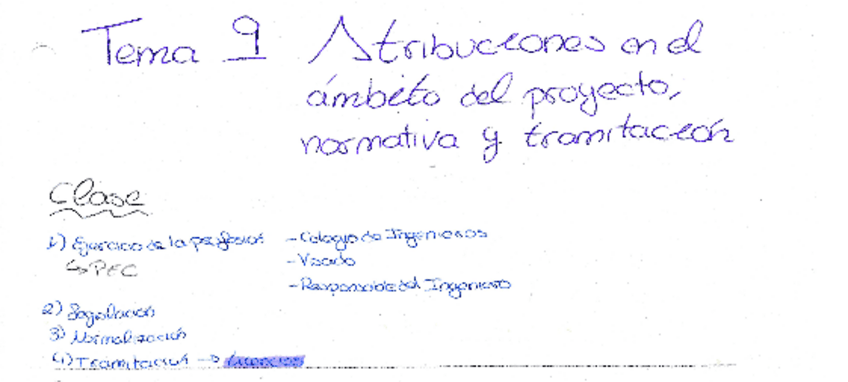 Tema 9 Atribuciones en el
ámbito del proyecto,
normativa y tramitación
Clase
1) Ejercicio de la profesión - Colegio de Ingenieros
↳ PEC - Visado
- Responsable del Ingeniero
2) Legislación
3) Normalización
4) Tramitación → Licencias